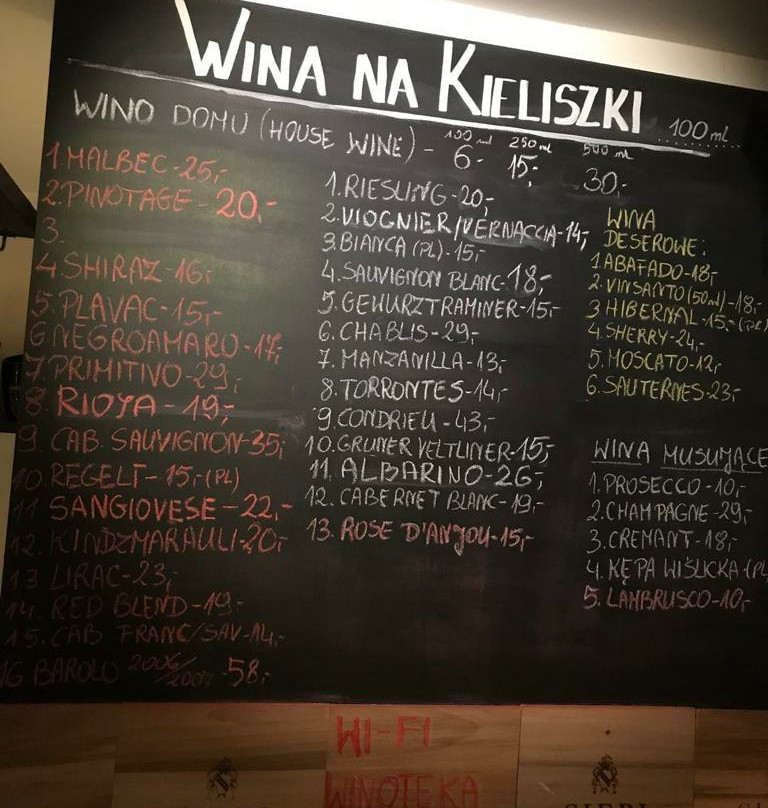 WINA NA KIELISZKI 100 ml
WINO DOMU (HOUSE WINE) - 100 ml 6.- 250 ml 15,- 500 ml 30,-
1.MALBEC-25,-
2.PINOTAGE - 20,-
3.
4.SHIRAZ-16,-
5.PLAVAC-15,-
6.NEGROAMARO-17,-
7.PRIMITIVO-29,-
8.RIOJA-19,-
9.CAB. SAUVIGNON-35,-
10.REGELT-15,-(PL)
11.SANGIOVESE-22,-
12.KINDZMARAULI-20,-
13 LIRAC-23,-
14.RED BLEND-19-
15.CAB FRANC/SAV-14,-
16 BAROLO 2006/ 58,-
1.RIESLING-20,-
2.VIOGNIER/VERNACCIA-14,-
3.BIANCA (PL)-15,-
4.SAUVIGNON BLANC-18,-
5.GEWURZTRAMINER-15,-
6.CHABLIS-29,-
7.MANZANILLA-13,-
8.TORRONTES-14,-
9.CONDRIEU-43,-
10.GRUNER VELTLINER-15,-
11.ALBARINO-26,-
12.CABERNET BLANC-19,-
13.ROSE D'ANJOU-15,-
WINA
DESEROWE:
1.ABAFADO-18,-
2.VINSANTO(50ml)-18,-
3 HIBERNAL-15,-(PL)
4.SHERRY-24,-
5.MOSCATO-12,-
6.SAUTERNES-23,-
WINA MUSUJĄCE
1.PROSECCO-10,-
2.CHAMPAGNE-29,-
3.CREMANT-18,-
4.KĘPA WIŚLICKA (PL
5.LAMBRUSCO-10,-
WI-FI
WINOTEKA